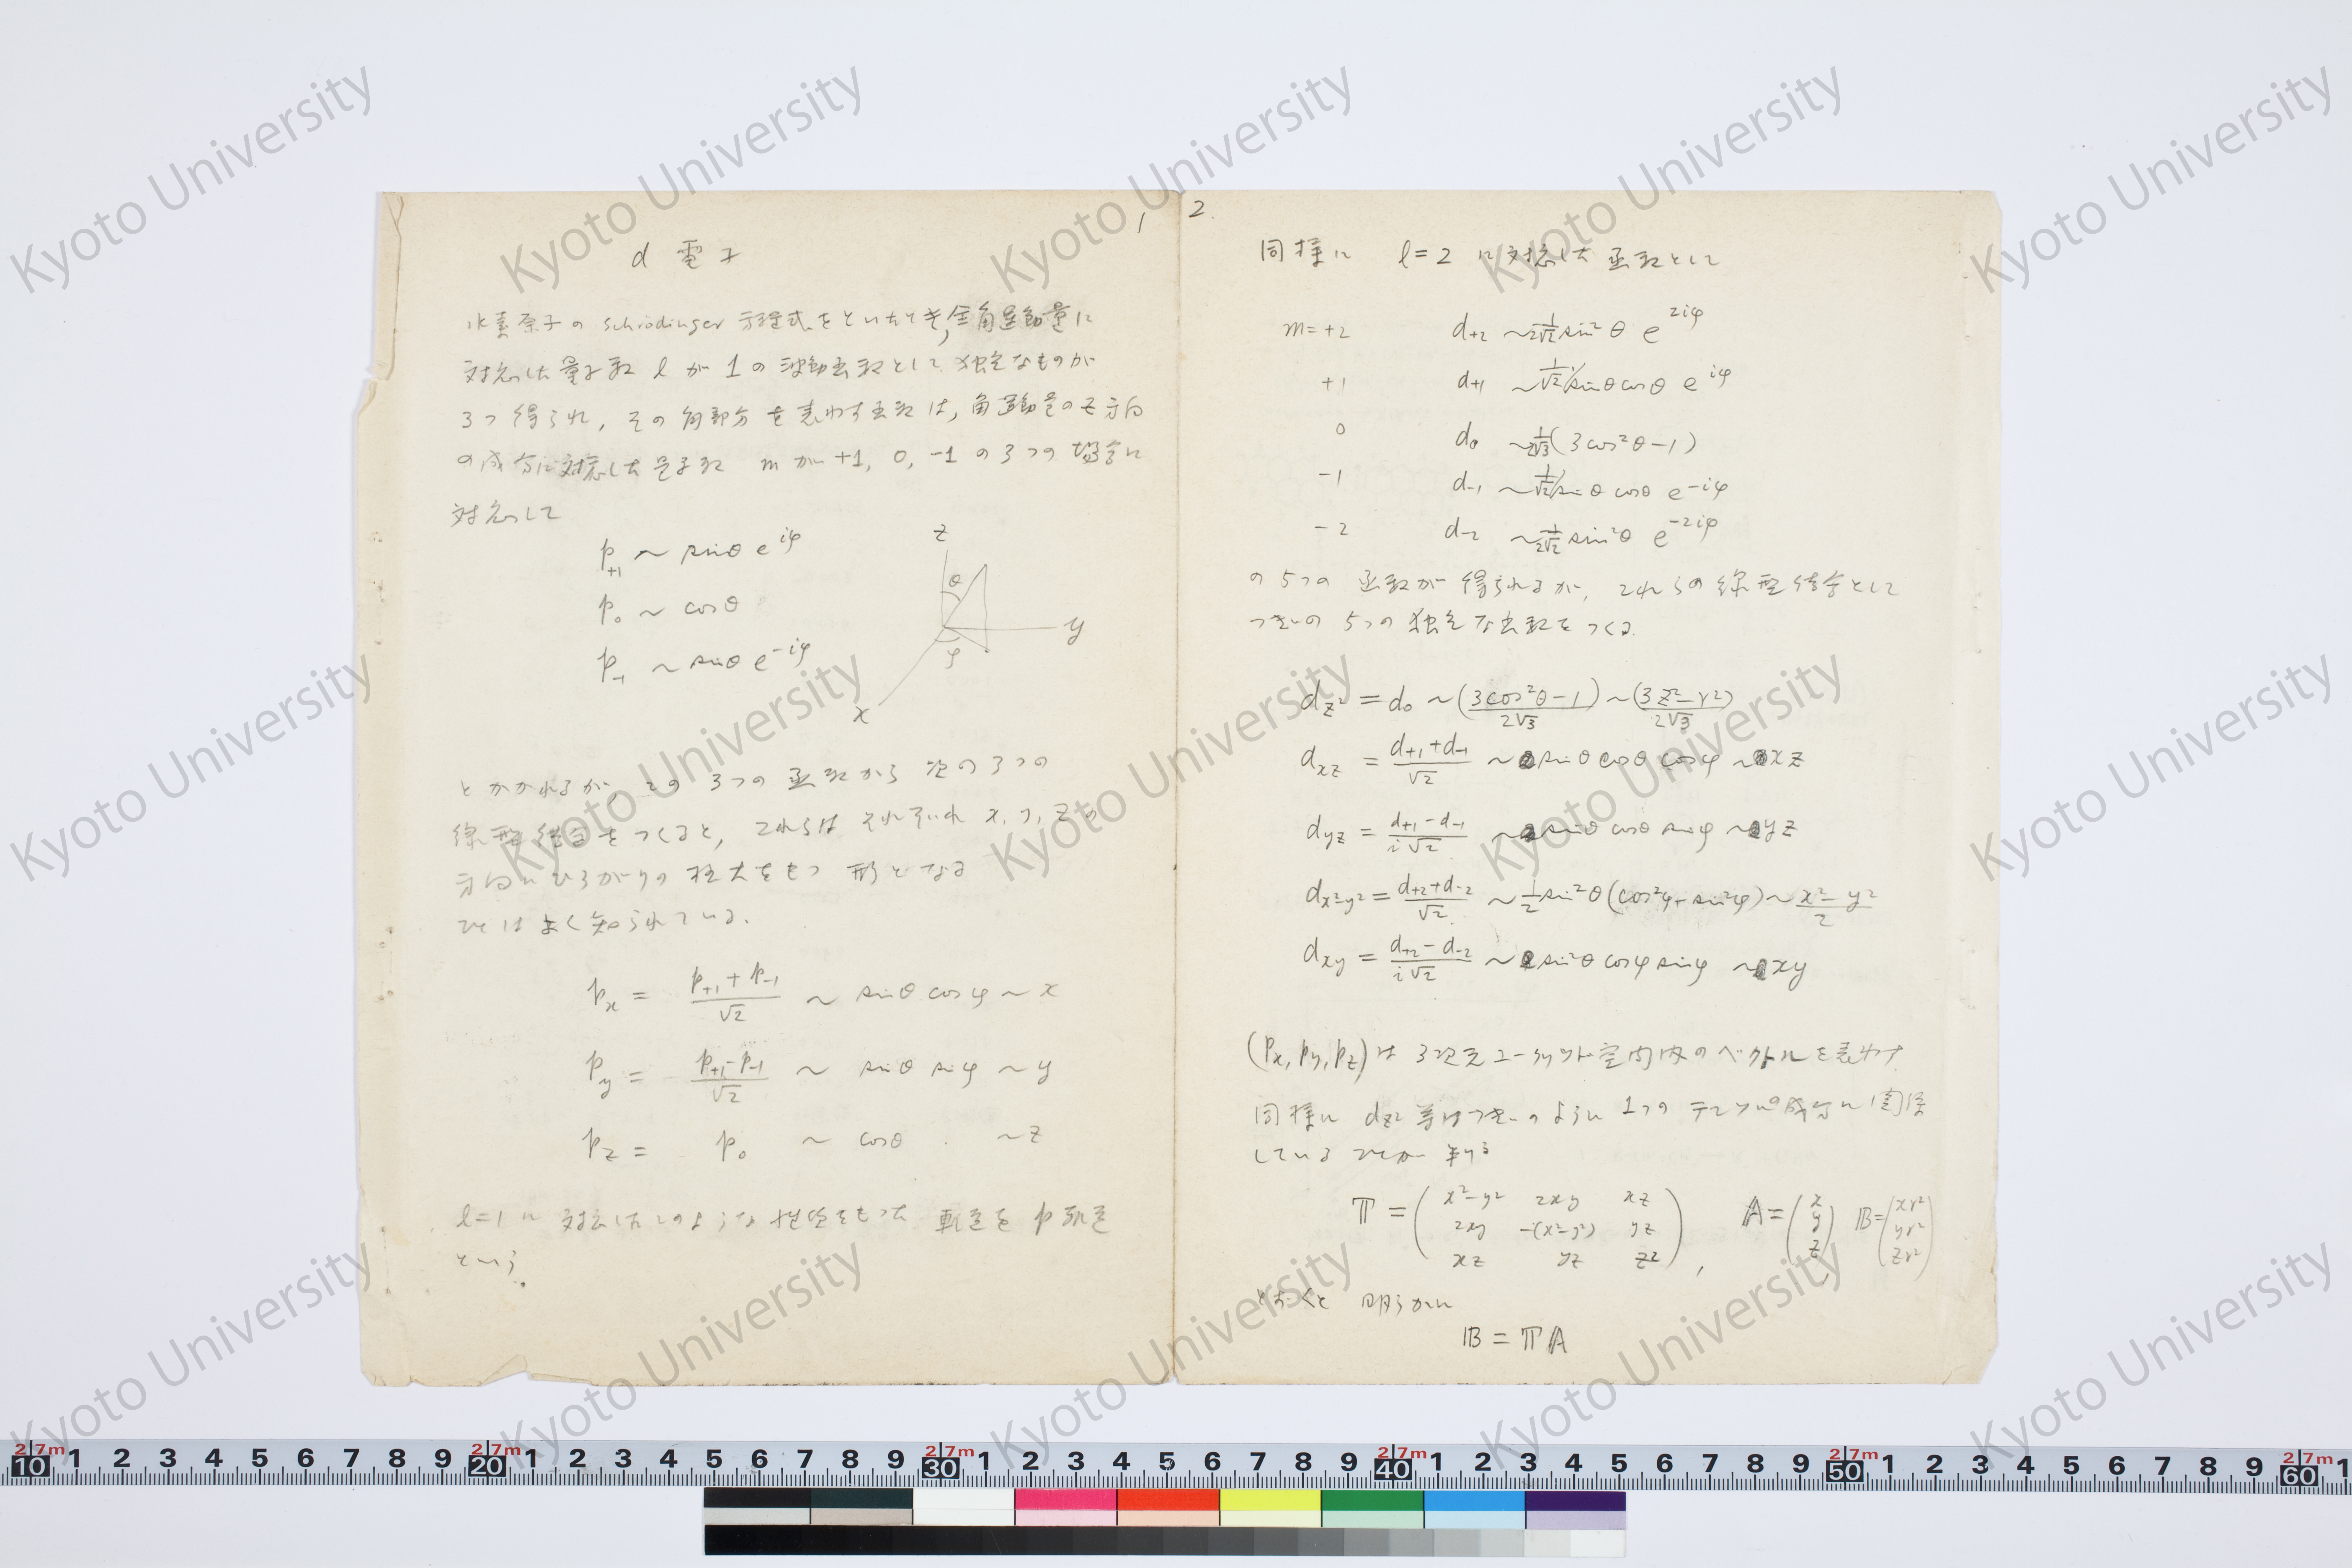 1
d 電子
水素原子の Schrödinger 方程式をといたとき, 全角運動量に
対応した量子数 l が 1 の波動函数として独立なものが
3つ得られ, その角部分を表わす函数は, 角運動量の z 方向
の成分に対応した量子数 m が +1, 0, -1 の3つの場合に
対応して
p+1 ~ sinθ e^{iφ}
p0 ~ cosθ
p-1 ~ sinθ e^{-iφ}
z
θ
y
φ
x
とかかれるが, この3つの函数から次の3つの
線型結合をつくると, これらはそれぞれ x, y, z の
方向にひろがりの極大をもつ形となる
ことはよく知られている.
px = (p+1 + p-1)/√2 ~ sinθ cosφ ~ x
py = (p+1 - p-1)/√2 ~ sinθ sinφ ~ y
pz = p0 ~ cosθ ~ z
l=1 に対応したこのような性質をもった軌道を p 軌道
という.
2.
同様に l=2 に対応した函数として
m=+2 d+2 ~ 1/(2√2) sin²θ e^{2iφ}
+1 d+1 ~ 1/√2 sinθ cosθ e^{iφ}
0 d0 ~ 1/(2√3) (3cos²θ-1)
-1 d-1 ~ 1/√2 sinθ cosθ e^{-iφ}
-2 d-2 ~ 1/(2√2) sin²θ e^{-2iφ}
の5つの函数が得られるが, これらの線型結合として
つぎの5つの独立な函数をつくる.
dz² = d0 ~ (3cos²θ-1)/(2√3) ~ (3z²-r²)/(2√3)
dxz = (d+1 + d-1)/√2 ~ sinθ cosθ cosφ ~ xz
dyz = (d+1 - d-1)/(i√2) ~ sinθ cosθ sinφ ~ yz
dx²-y² = (d+2 + d-2)/√2 ~ 1/2 sin²θ(cos²φ - sin²φ) ~ (x²-y²)/2
dxy = (d+2 - d-2)/(i√2) ~ sin²θ cosφ sinφ ~ xy
(px, py, pz) は3次元ユークリッド空間内のベクトルを表わす.
同様に dz² 等はつぎのように1つのテンソルの成分に関係
していることが判る
𝕋 = ( x²-y² 2xy xz
2xy -(x²-y²) yz
xz yz z² ), 𝔸 = ( x y z ), 𝔹 = ( xr² yr² zr² )
とおくと 明らかに
𝔹 = 𝕋𝔸
Kyoto University